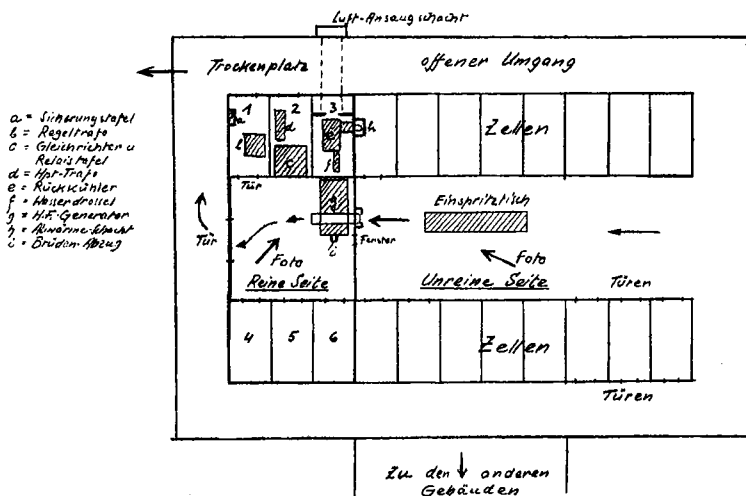 Luft-Ansaugschacht
Trockenplatz
offener Umgang
a = Sicherungstafel
b = Regeltrafo
c = Gleichrichter u
Relaistafel
d = Hpt-Trafo
e = Rückkühler
f = Wasserdrossel
g = H.F.-Generator
h = Abwärme-Schacht
i = Brüden-Abzug
1
2
3
a
b
c
d
e
f
h
Zellen
Tür
Tür
g
i
Fenster
Einspritztisch
Foto
Foto
Reine Seite
Unreine Seite
Türen
4
5
6
Zellen
Türen
Zu den anderen
Gebäuden